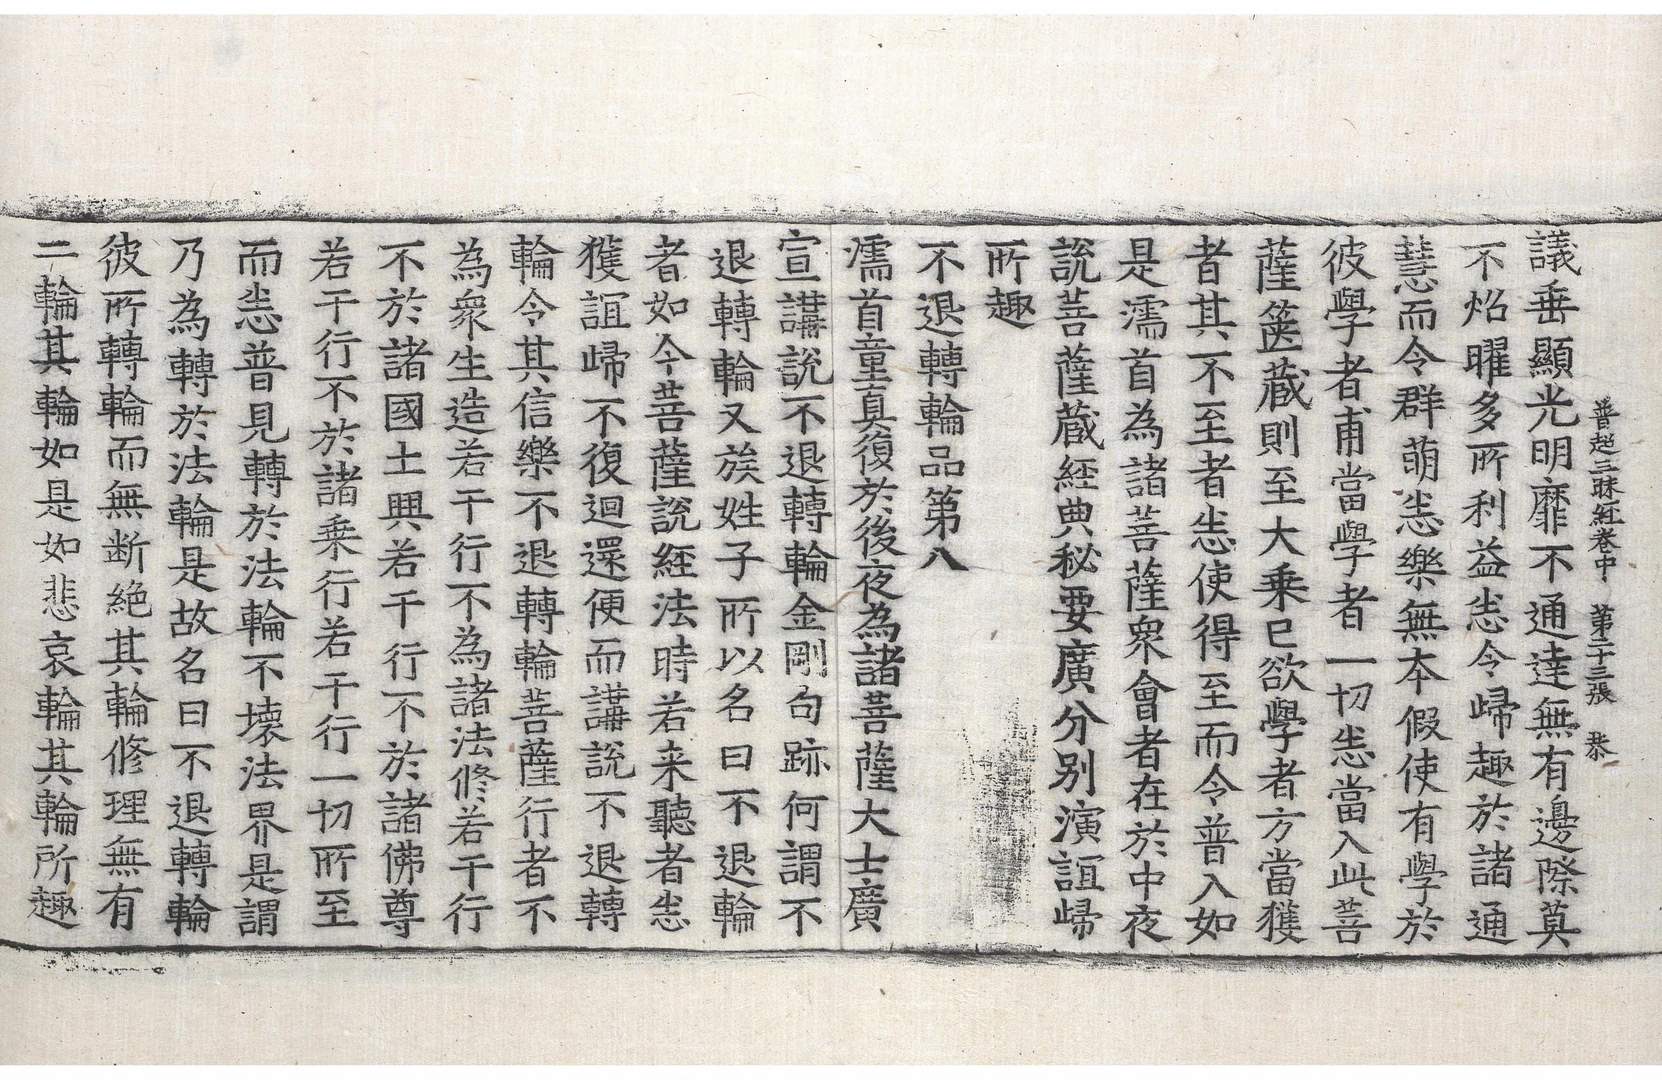 普超三昧経卷中　第三十三張　恭
議垂顯光明靡不通達無有邊際莫
不焰曜多所利益悉令歸趣於諸通
慧而令群萌悉樂無本假使有學於
彼學者甫當學者一切悉當入此菩
薩篋藏則至大乘已欲學者方當獲
者其不至者悉使得至而令普入如
是濡首為諸菩薩衆會者在於中夜
說菩薩藏經典秘要廣分别演誼歸
所趣
不退轉輪品第八
濡首童真復於後夜為諸菩薩大士廣
宣講說不退轉輪金剛句跡何謂不
退轉輪又族姓子所以名曰不退輪
者如今菩薩說経法時若来聽者悉
獲誼歸不復迴還便而講說不退轉
輪令其信樂不退轉輪菩薩行者不
為衆生造若干行不為諸法修若干行
不於諸國土興若干行不於諸佛尊
若干行不於諸乗行若干行一切所至
而悉普見轉於法輪不壊法界是謂
乃為轉於法輪是故名曰不退轉輪
彼所轉輪而無断絶其輪修理無有
二輪其輪如是如悲哀輪其輪所趣